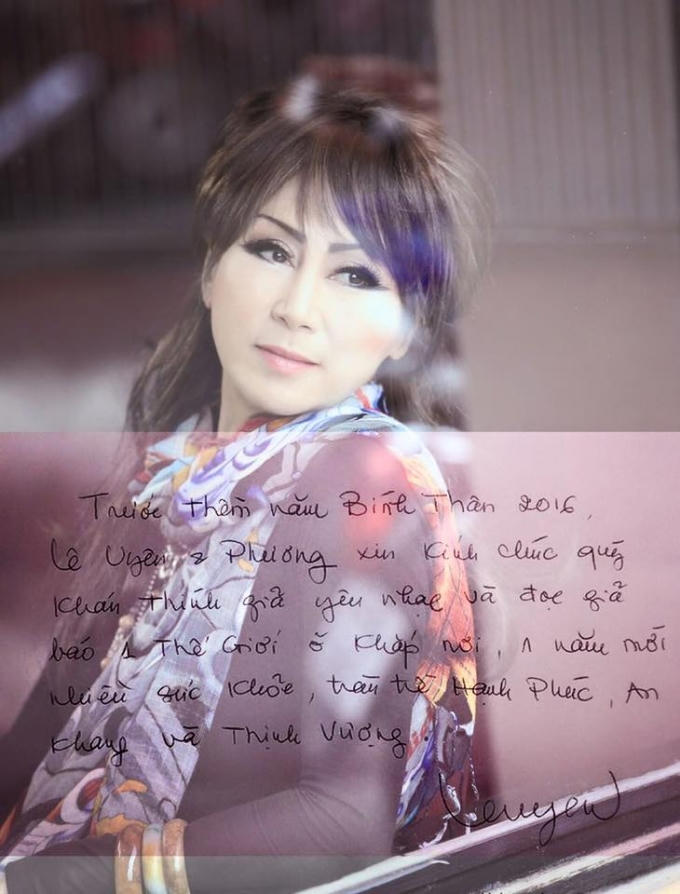 Trước thềm năm Bính Thân 2016,
Lê Uyên & Phương xin kính chúc quý
khán thính giả yêu nhạc và đọc giả
báo 1 Thế Giới ở khắp nơi, 1 năm mới
nhiều sức khỏe, tràn trề Hạnh Phúc, An
Khang và Thịnh Vượng.
Leuyen